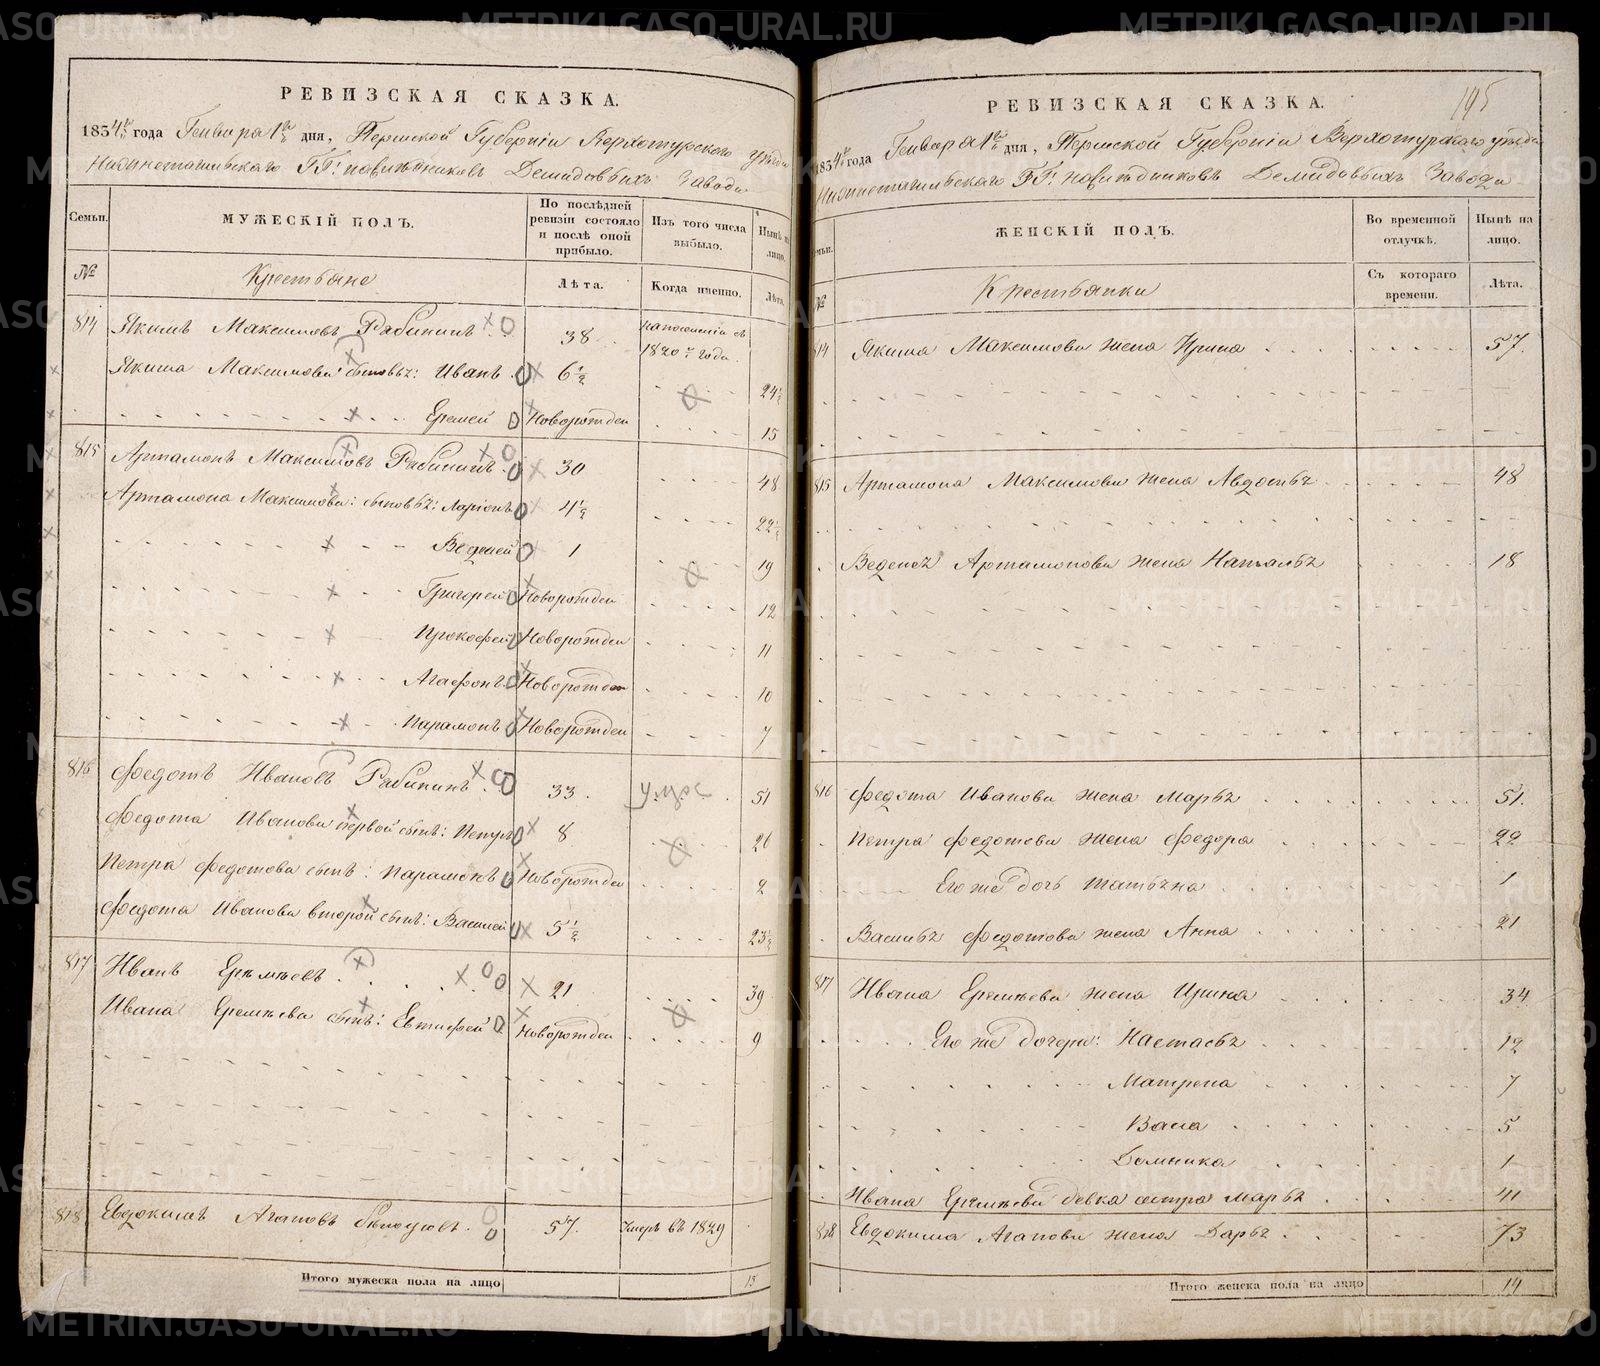 РЕВИЗСКАЯ СКАЗКА.
1834го года Генваря 1го дня, Пермской Губерніи Верхотурского уезда
Нижнетагильского ГГ: наследниковъ Демидовыхъ Завода
Семьи.
МУЖЕСКІЙ ПОЛЪ.
По послѣдней ревизіи состояло и послѣ оной прибыло.
Изъ того числа выбыло.
Нынѣ на лицо.
№
Крестьяне
Лѣта.
Когда именно.
Лѣта.
814 Якимъ Максимовъ Рябининъ 38
1820го года
Якима Максимова сыновья: Иванъ 6½ 24½
Еремей Новорожден 15
815 Артамонъ Максимовъ Рябининъ 30 48
Артамона Максимова: сыновья: Ларіонъ 4½ 22½
Веденей 1 19
Григорей Новорожден 12
Прокофей Новорожден 11
Агафонъ Новорожден 10
Парамонъ Новорожден 7
816 Федотъ Ивановъ Рябининъ 33 51
Федота Иванова первой сынъ: Петръ 8 26
Петра Федотова сынъ: Парамонъ Новорожден 2
Федота Иванова второй сынъ: Василей 5½ 23½
817 Иванъ Еремѣевъ 21 39
Ивана Еремѣева сынъ: Евтифей Новорожден 9
818 Евдокимъ Агаповъ Бѣлоусовъ 57 Умеръ въ 1829
Итого мужеска пола на лицо 15
195
РЕВИЗСКАЯ СКАЗКА.
1834го года Генваря 1го дня, Пермской Губерніи Верхотурского уезда
Нижнетагильского ГГ: наследниковъ Демидовыхъ Завода
Семьи.
ЖЕНСКІЙ ПОЛЪ.
Во временной отлучкѣ.
Нынѣ на лицо.
№
Крестьянки
Съ котораго времени.
Лѣта.
814 Якима Максимова жена Ирина 57
815 Артамона Максимова жена Авдотья 48
Веденея Артамонова жена Наталья 18
816 Федота Иванова жена Марья 51
Петра Федотова жена Федора 22
Его же дочь Татьяна 1
Василья Федотова жена Анна 21
817 Ивана Еремѣева жена Ирина 34
Его же дочери: Настасья 12
Матрена 7
Васа 5
Домника 1
Ивана Еремѣева девка сестра Марья 41
818 Евдокима Агапова жена Дарья 73
Итого женска пола на лицо 14
METRIKI.GASO-URAL.RU